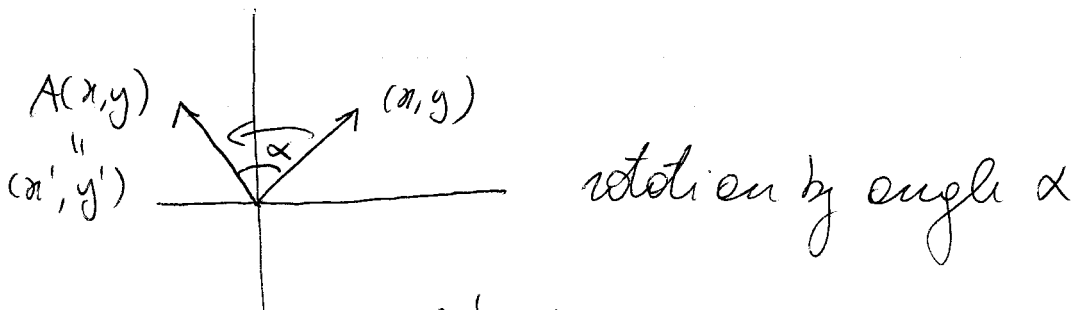 A(x,y)
(x,y)
"
α
(x',y')
rotation by angle α